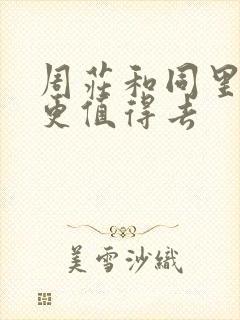 周荘和同里
更值得去
美雪沙織